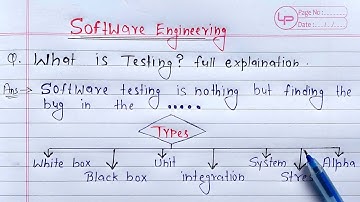 Software Engineering
LP
Page No:
Date: / /
Q. What is Testing? full explaination.
Ans → Software testing is nothing but finding the
bug in the .....
Types
White box Unit System Alpha
Black box integration Stress